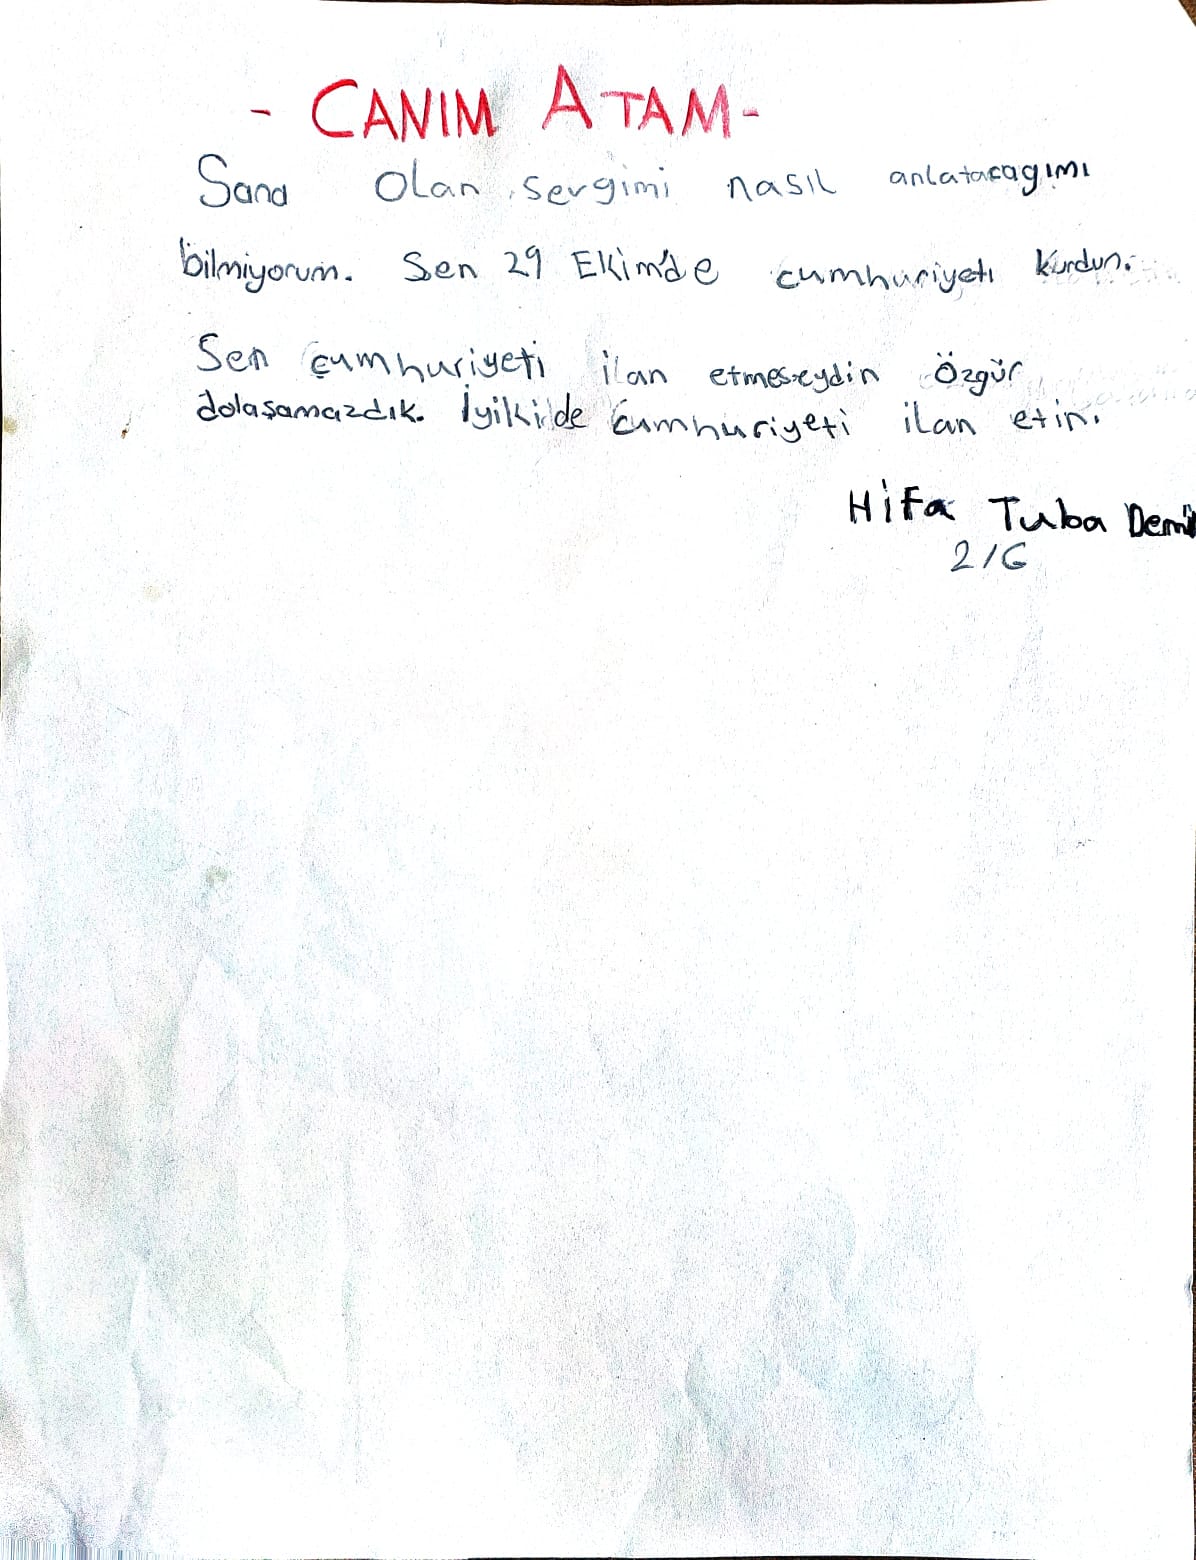 - CANIM ATAM -
Sana Olan sevgimi nasıl anlatacagımı
bilmiyorum. Sen 29 Ekim'de cumhuriyetı kurdun.
Sen çumhuriyeti ilan etmeseydin Özgür
dolaşamazdık. İyikide cumhuriyeti ilan etin.
Hifa Tuba Demir
2/G